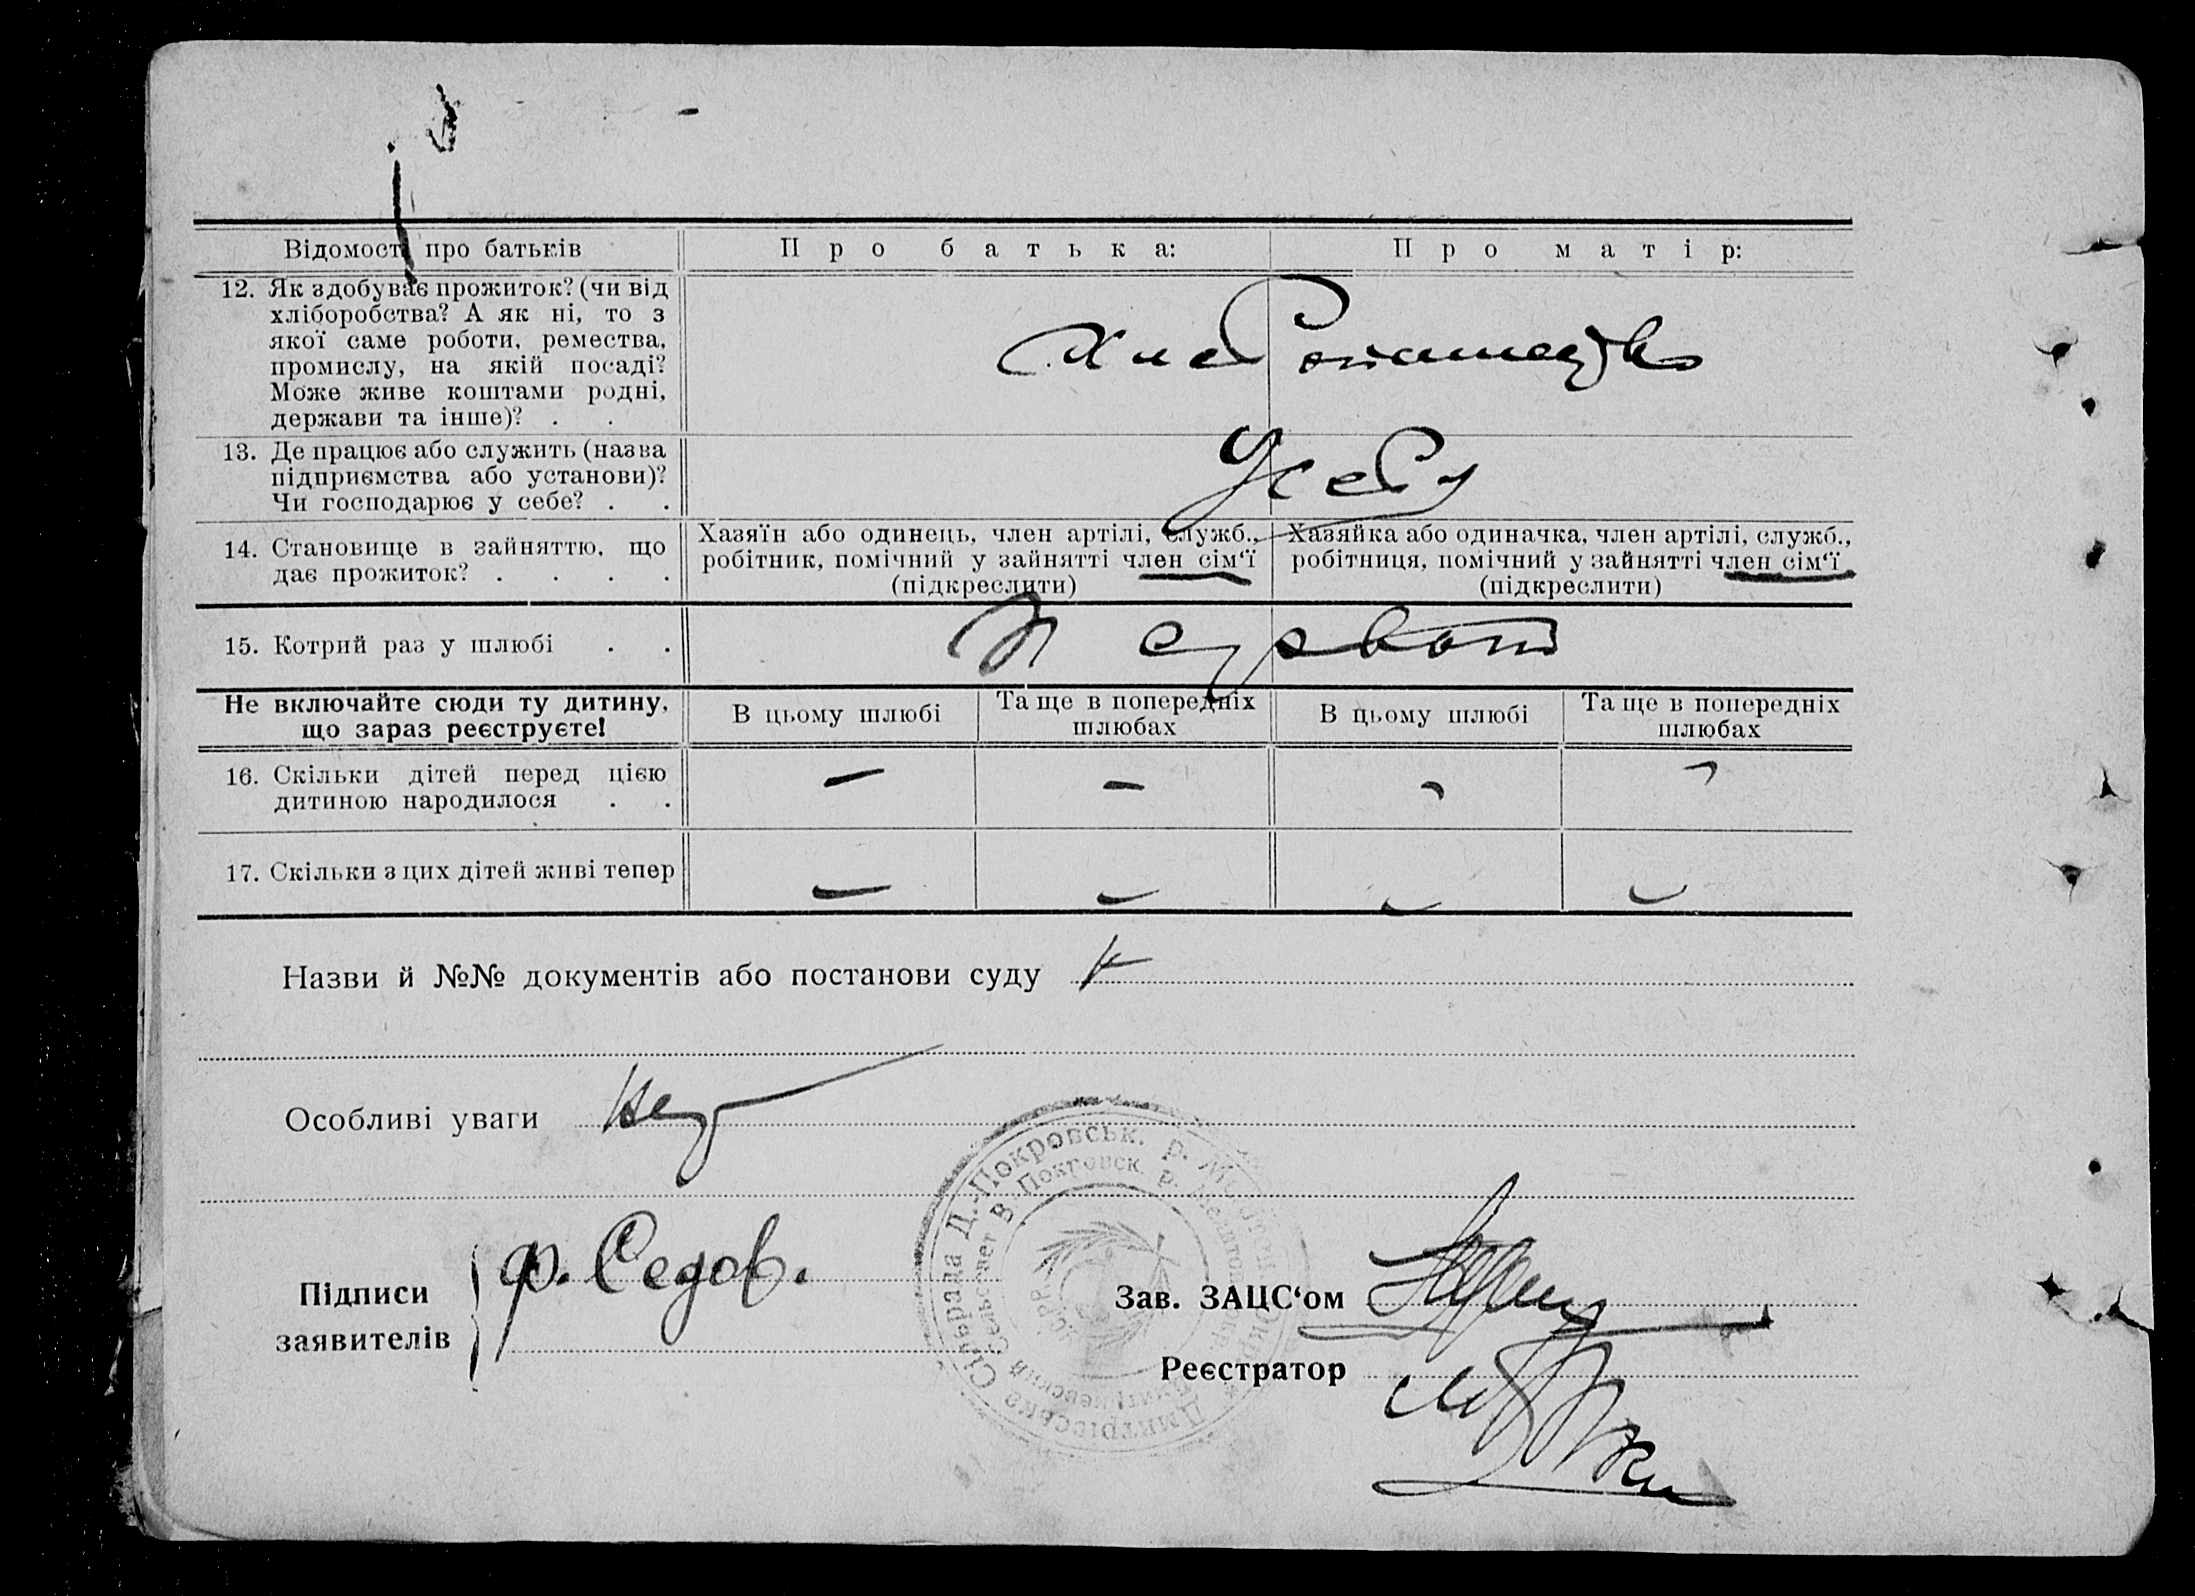 Відомості про батьків
Про батька:
Про матір:
12. Як здобуває прожиток? (чи від
хліборобства? А як ні, то з
якої саме роботи, ремества,
промислу, на якій посаді?
Може живе коштами родні,
держави та інше)? . .
13. Де працює або служить (назва
підприємства або установи)?
Чи господарює у себе? . .
У себя
14. Становище в зайняттю, що
дає прожиток? . . . .
Хазяїн або одинець, член артілі, служб.,
робітник, помічний у зайнятті член сім‘ї
(підкреслити)
Хазяйка або одиначка, член артілі, служб.,
робітниця, помічний у зайнятті член сім‘ї
(підкреслити)
15. Котрий раз у шлюбі . .
Не включайте сюди ту дитину,
що зараз реєструєте!
В цьому шлюбі
Та ще в попередніх
шлюбах
В цьому шлюбі
Та ще в попередніх
шлюбах
16. Скільки дітей перед цією
дитиною народилося . .
— — — —
17. Скільки з цих дітей живі тепер
— — — —
Назви й №№ документів або постанови суду
Особливі уваги
Підписи
заявителів
Ф. Седов.
Зав. ЗАЦС‘ом
Реєстратор
Сільрада В.-Покровськ. р.
Покровск. р.